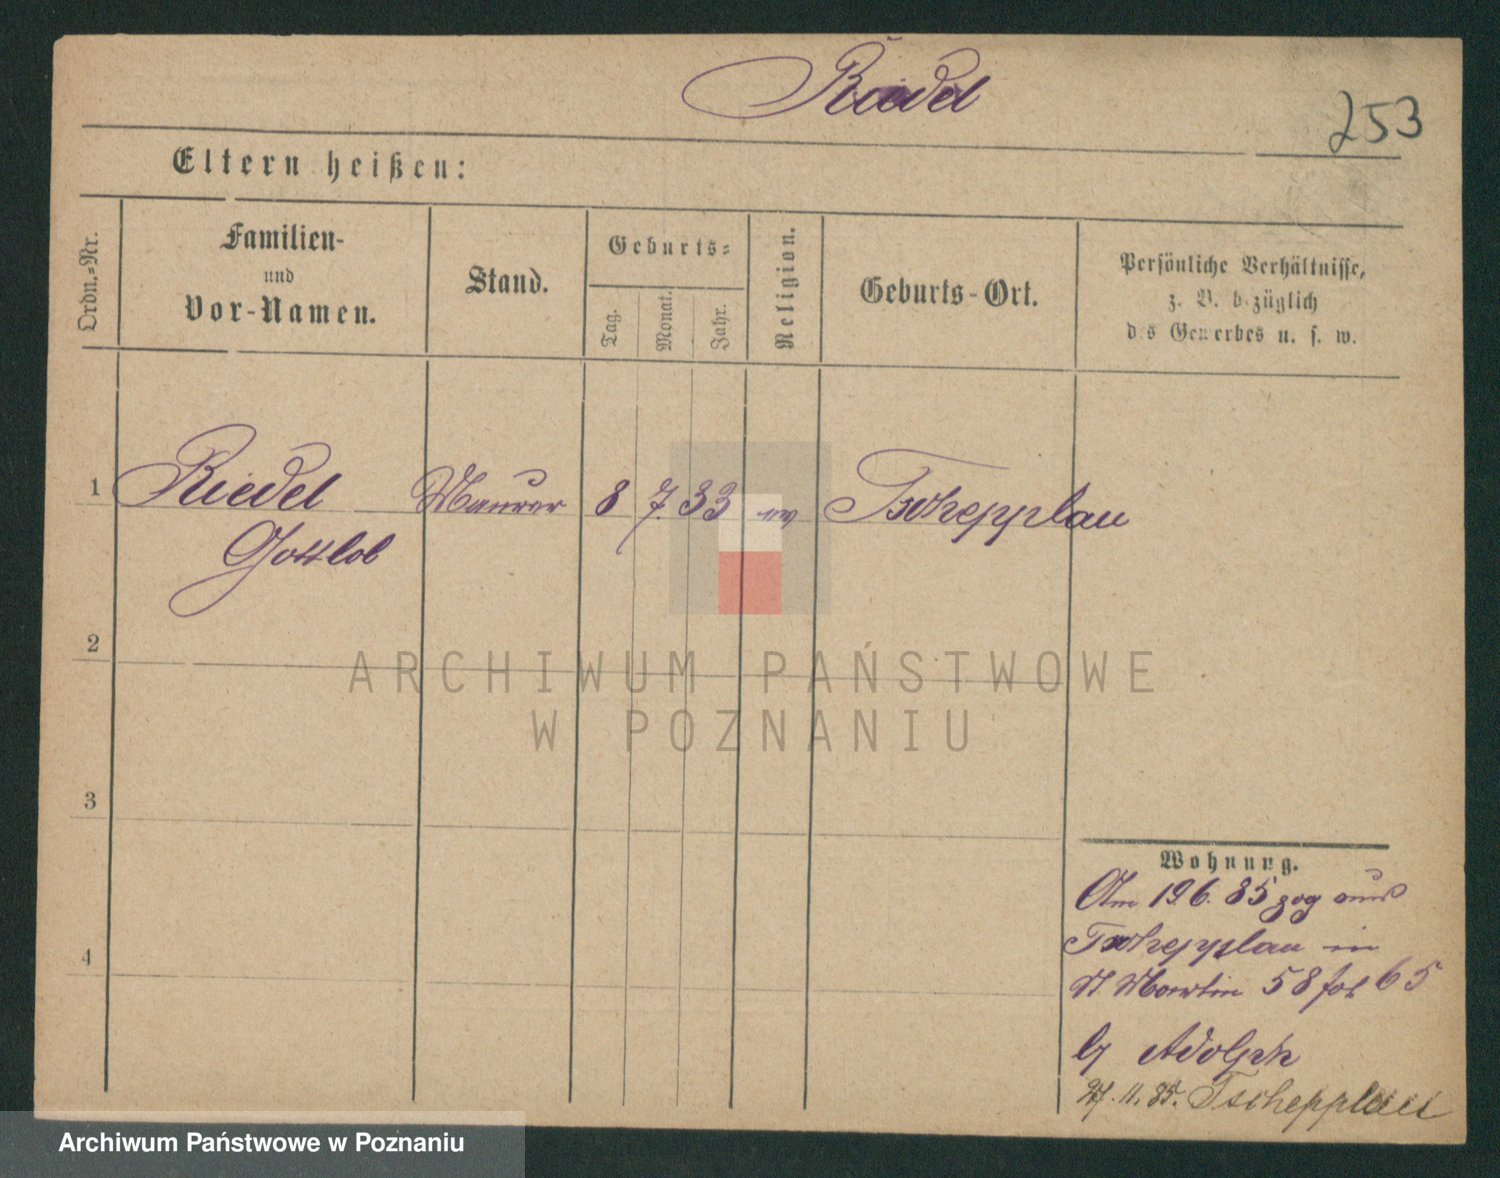 Riedel
253
Eltern heißen:
Ordn.=Nr.
Familien-
und
Vor-Namen.
Stand.
Geburts=
Tag.
Monat.
Jahr.
Religion.
Geburts-Ort.
Persönliche Verhältnisse,
z. B. bezüglich
des Gewerbes u. s. w.
1 Riedel Maurer 8 7. 33 ev Tscheppлau
Gottlob
2
ARCHIWUM PAŃSTWOWE
W POZNANIU
3
4
Wohnung.
Am 19 6. 85 zog aus
Tschepplau in
St. Martin 58 fol 65
Adolph
27. 11. 85. Tschepplau
Archiwum Państwowe w Poznaniu